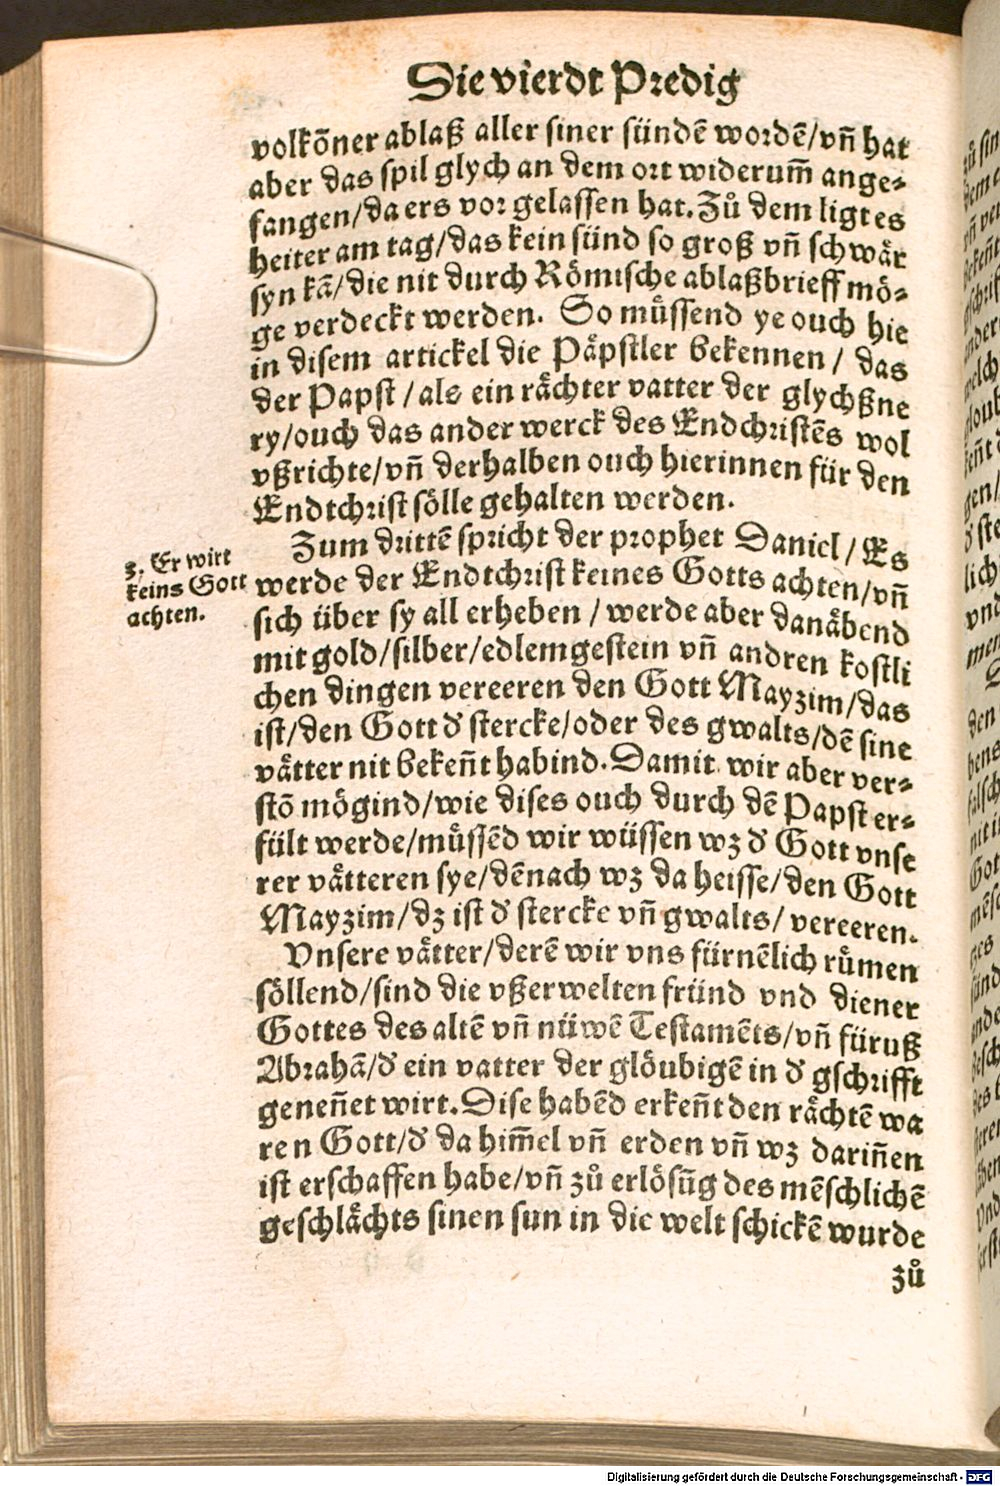 Die vierdt Predig
volkõner ablaß aller siner sündẽ wordẽ/vñ hat
aber das spil glych an dem ort widerum̃ ange-
fangen/da ers vor gelassen hat. Zů dem ligt es
heiter am tag/das kein sünd so groß vñ schwår
syn kã/die nit durch Römische ablaßbrieff mö-
ge verdeckt werden. So müssend ye ouch hie
in disem artickel die Påpstler bekennen / das
der Papst / als ein råchter vatter der glychßne
ry/ouch das ander werck des Endchristẽs wol
vßrichte/vñ derhalben ouch hierinnen für den
Endtchrist sölle gehalten werden.
Zum drittẽ spricht der prophet Daniel / Es
3. Er wirt
keins Gott
achten.
werde der Endtchrist keines Gotts achten/vñ
sich über sy all erheben / werde aber danåbend
mit gold/silber/edlemgestein vñ andren kostli
chen dingen vereeren den Gott Mayzim/das
ist/den Gott d' stercke/oder des gwalts/dẽ sine
våtter nit bekeñt habind. Damit wir aber ver-
stõ mögind/wie dises ouch durch dẽ Papst er-
fült werde/müssẽd wir wüssen wz d' Gott vnse
rer våtteren sye/dẽnach wz da heisse/den Gott
Mayzim/dz ist d' stercke vñ gwalts/ vereeren.
Vnsere våtter/derẽ wir vns fürnẽlich růmen
söllend/sind die vßerwelten fründ vnd diener
Gottes des altẽ vñ nüwẽ Testamẽts/vñ füruß
Abrahã/d' ein vatter der glöubigẽ in d' gschrifft
geneñet wirt. Dise habẽd erkeñt den råchtẽ wa
ren Gott/d' da him̃el vñ erden vñ wz dariñen
ist erschaffen habe/vñ zů erlösũg des mẽschlichẽ
geschlåchts sinen sun in die welt schickẽ wurde
zů
Digitalisierung gefördert durch die Deutsche Forschungsgemeinschaft - DFG